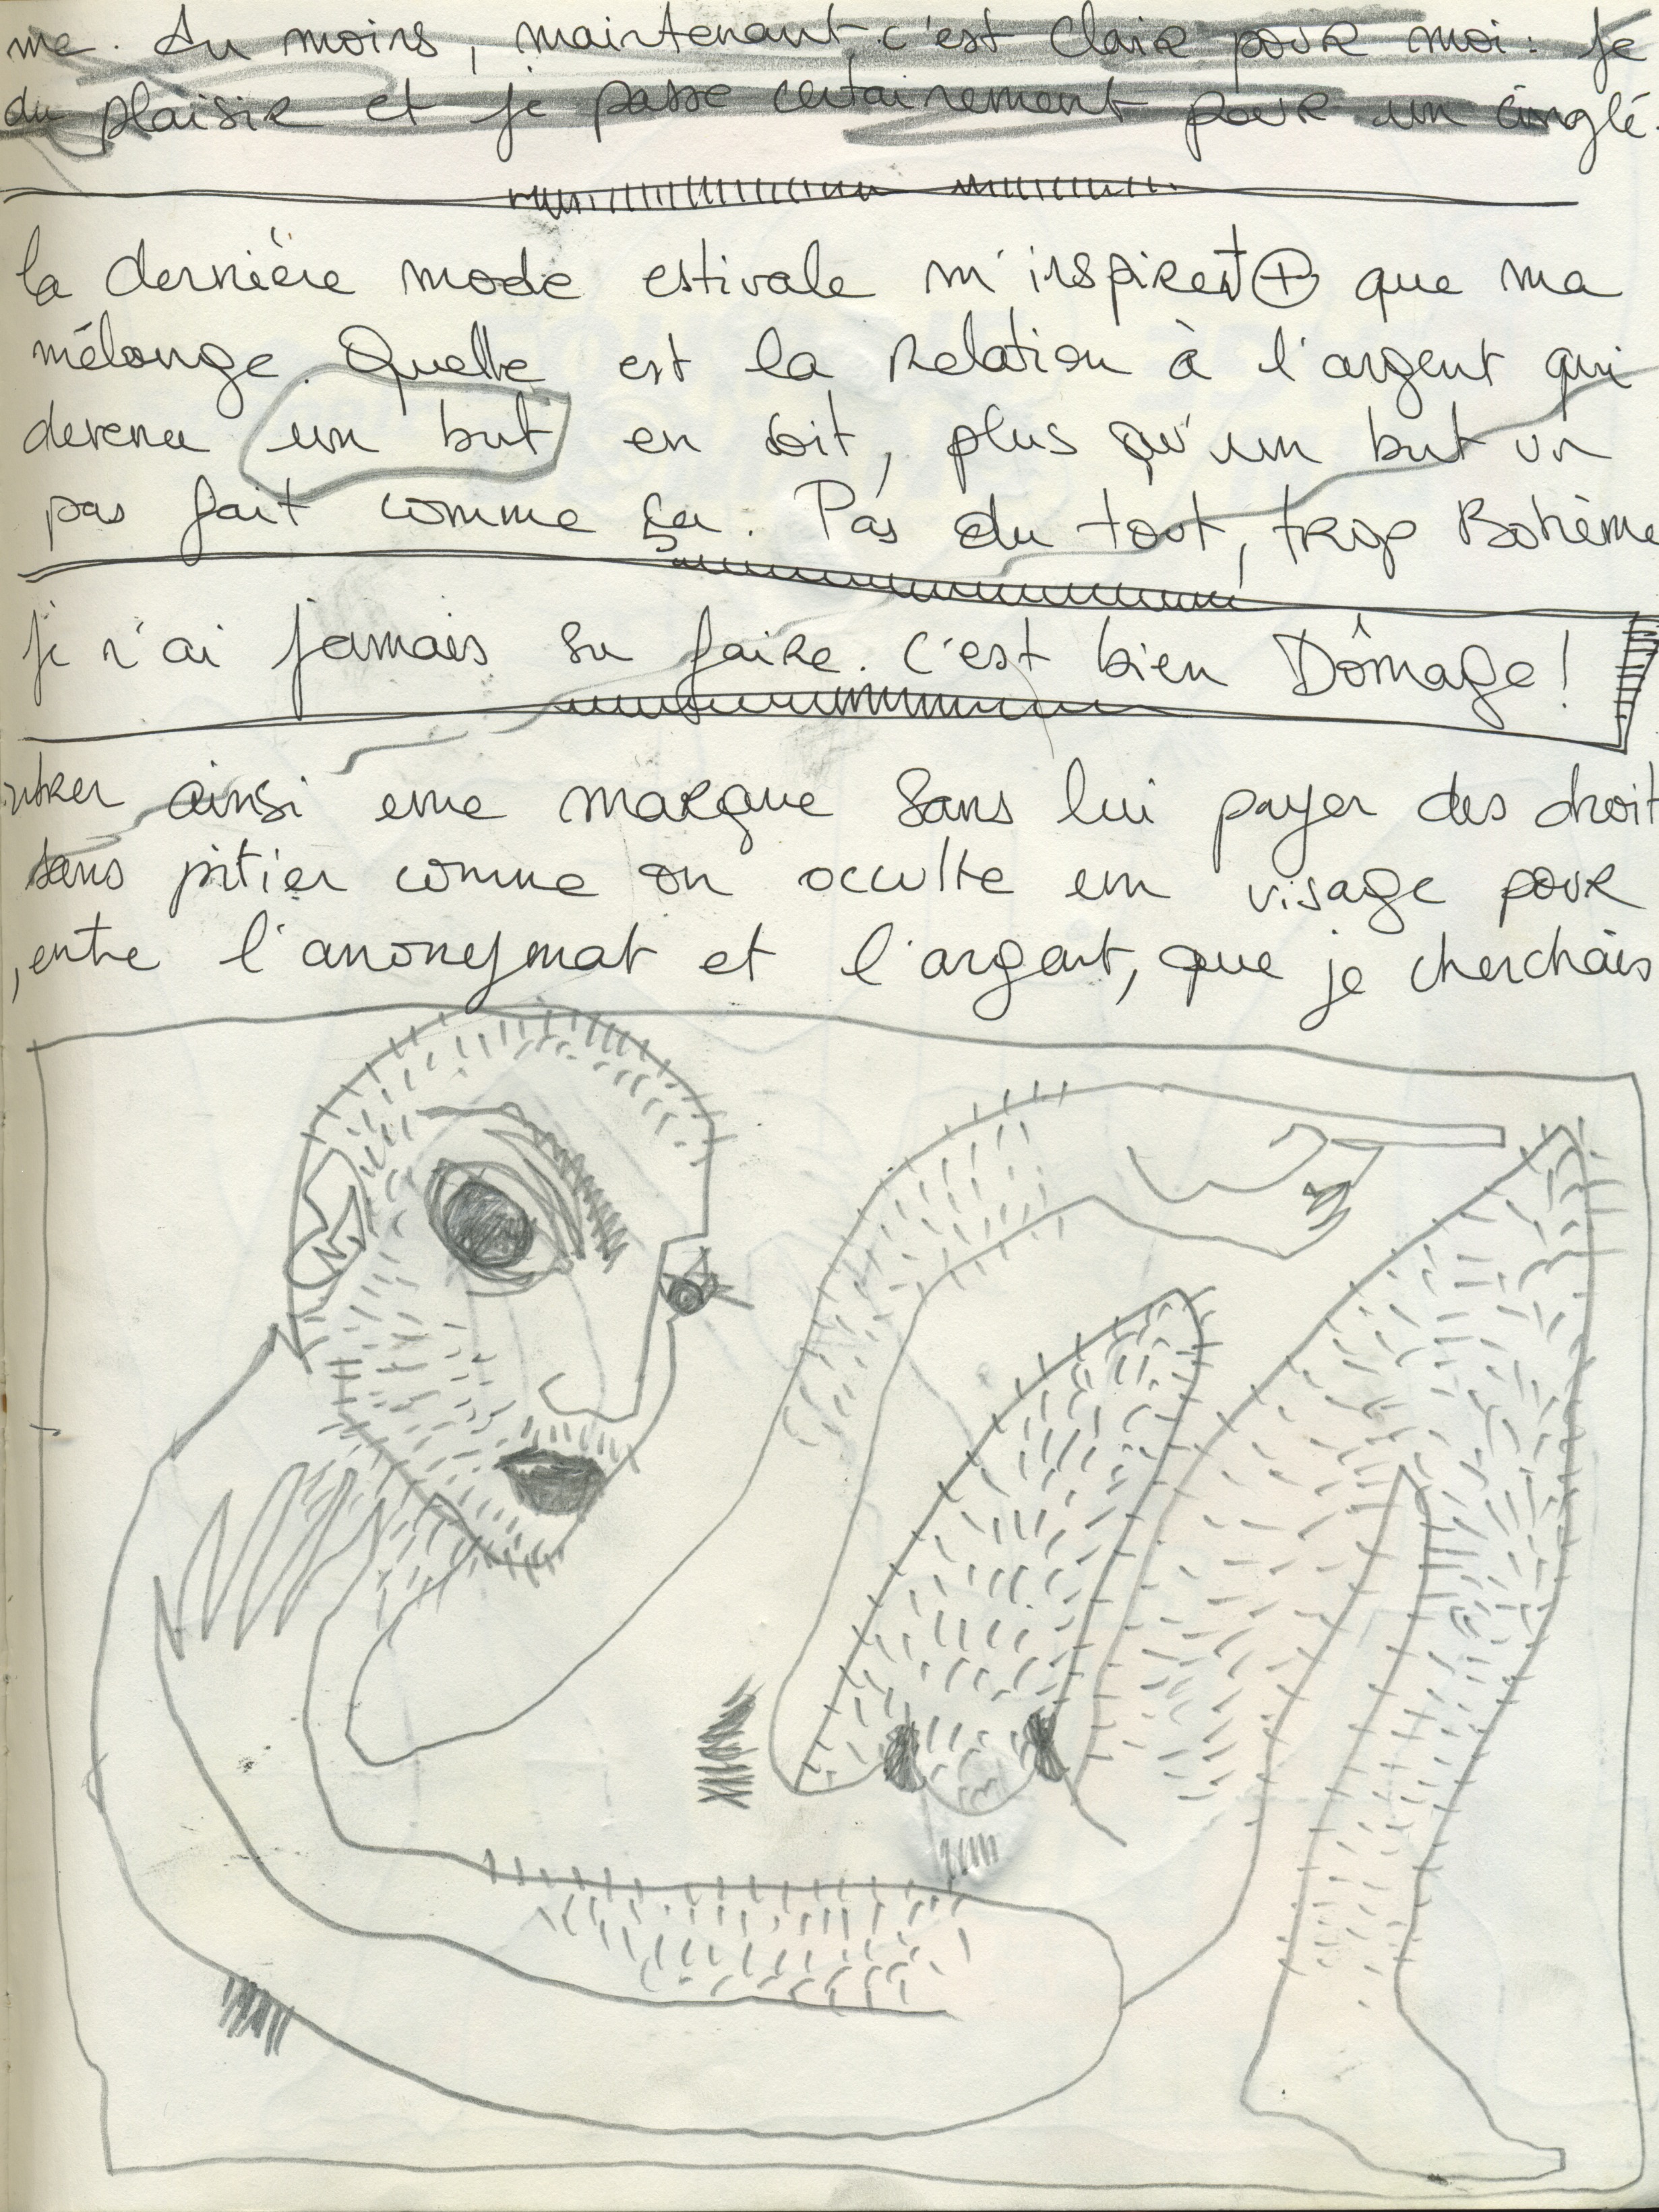 me. du moins, maintenant, c'est claire pour moi : je
du plaisir et je passe certainement pour un cinglé.
la dernière mode estivale m'inspiret ⊕ que ma
mélange. Quelle est la relation à l'argent qui
devenu un but en soit, plus qu'un but un
pas fait comme ça. Pas du tout, trop Bohème
je n'ai jamais su faire. c'est bien Dômage !
ntrer ainsi une marque sans lui payer des droit
sans pitier comme on occulte un visage pour
, entre l'anonymat et l'argent, que je cherchais